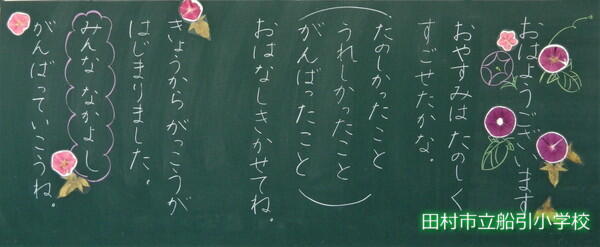 おはようございます
おやすみは たのしく
すごせたかな。
たのしかったこと
うれしかったこと
がんばったこと
おはなしきかせてね。
きょうからがっこうが
はじまりました。
みんな なかよし
がんばっていこうね。
田村市立船引小学校